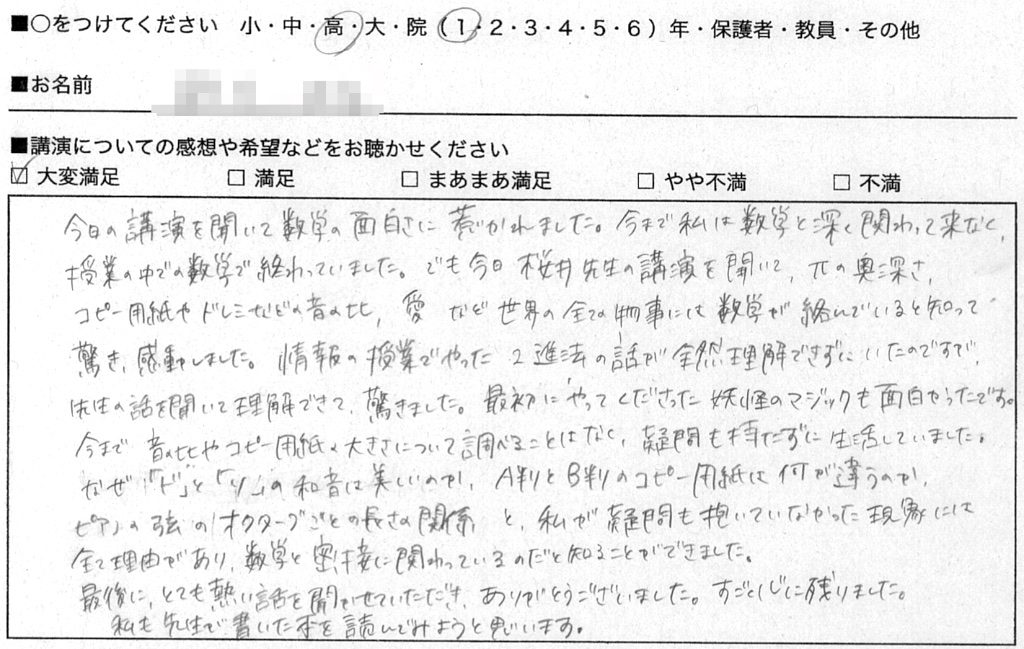 ■○をつけてください 小・中・高・大・院（1・2・3・4・5・6）年・保護者・教員・その他
■お名前
■講演についての感想や希望などをお聴かせください
☑ 大変満足 □ 満足 □ まあまあ満足 □ やや不満 □ 不満
今日の講演を聞いて数学の面白さに惹かれました。今まで私は数学と深く関わって来なく、
授業の中での数学で終わっていました。でも今日桜井先生の講演を聞いて、πの奥深さ、
コピー用紙やドレミなどの音の比、愛など世界の全ての物事には数学が絡んでいると知って
驚き、感動しました。情報の授業でやった2進法の話が全然理解できずにいたのですが、
先生の話を聞いて理解できて、驚きました。最初にやってくださった妖怪のマジックも面白かったです。
今まで音の比やコピー用紙の大きさについて調べることはなく、疑問も持たずに生活していました。
なぜ「ド」と「ソ」の和音は美しいのか、A判とB判のコピー用紙は何が違うのか、
ピアノの弦の1オクターブごとの長さの関係と、私が疑問も抱いていなかった現象には
全て理由があり、数学と密接に関わっているのだと知ることができました。
最後に、とても熱い話を聞かせていただき、ありがとうございました。すごく心に残りました。
私も先生が書いた本を読んでみようと思います。